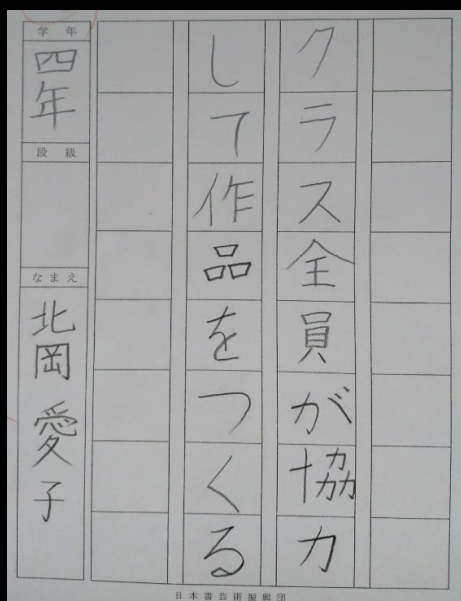 クラス全員が協力
して作品をつくる
学年
四年
段級
なまえ
北岡愛子
日本書芸術振興団